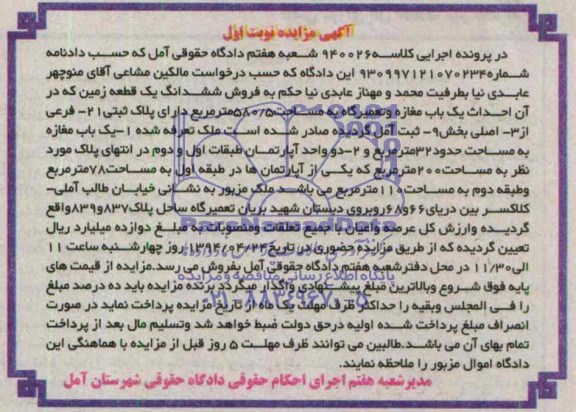 آگهی مزایده نوبت اول
در پرونده اجرایی کلاسه ۹۴۰۰۲۶ شعبه هفتم دادگاه حقوقی آمل که حسب دادنامه
شماره ۹۳۰۹۹۷۱۲۱۰۷۰۲۳۴ این دادگاه که حسب درخواست مالکین مشاعی آقای منوچهر
عابدی نیا بطرفیت محمد و مهناز عابدی نیا حکم به فروش ششدانگ یک قطعه زمین که در
آن احداث یک باب مغازه وتعمیرگاه به مساحت ۵۸۰/۵ مترمربع دارای پلاک ثبتی ۲۱- فرعی
از ۳- اصلی بخش ۹- ثبت آمل گردیده صادر شده است ملک تعرفه شده ۱-یک باب مغازه
به مساحت حدود ۳۲ مترمربع و ۲-دو واحد آپارتمان طبقات اول و دوم در انتهای پلاک مورد
نظر به مساحت ۲۰۰ مترمربع که یکی از آپارتمان ها در طبقه اول به مساحت ۷۸ مترمربع
وطبقه دوم به مساحت ۱۱۰ مترمربع می باشد ملک مزبور به نشانی خیابان طالب آملی-
کلاکسر بین دریای ۶۶و۶۸ روبروی دبستان شهید بریان تعمیرگاه ساحل پلاک ۸۳۷و۸۳۹ واقع
گردیده وارزش کل عرصه واعیان با جمیع تعلقات ومنصوبات به مبلغ دوازده میلیارد ریال
تعیین گردیده که از طریق مزایده حضوری در تاریخ ۱۳۹۴/۰۴/۲۴ روز چهارشنبه ساعت ۱۱
الی ۱۱/۳۰ در محل دفتر شعبه هفتم دادگاه حقوقی آمل بفروش می رسد.مزایده از قیمت های
پایه فوق شروع وبالاترین مبلغ پیشنهادی واگذار میگردد برنده مزایده باید ده درصد مبلغ
را فی المجلس وبقیه را حداکثر ظرف مهلت یک ماه از تاریخ مزایده پرداخت نماید در صورت
انصراف مبلغ پرداخت شده اولیه درحق دولت ضبط خواهد شد وتسلیم مال بعد از پرداخت
تمام بهای آن می باشد.طالبین می توانند ظرف مهلت ۵ روز قبل از مزایده با هماهنگی این
دادگاه اموال مزبور را ملاحظه نمایند.
مدیرشعبه هفتم اجرای احکام حقوقی دادگاه حقوقی شهرستان آمل
پایگاه اطلاع رسانی مناقصه و مزایده
۰۲۱-۸۸۳۴۹۶۷۰-۵